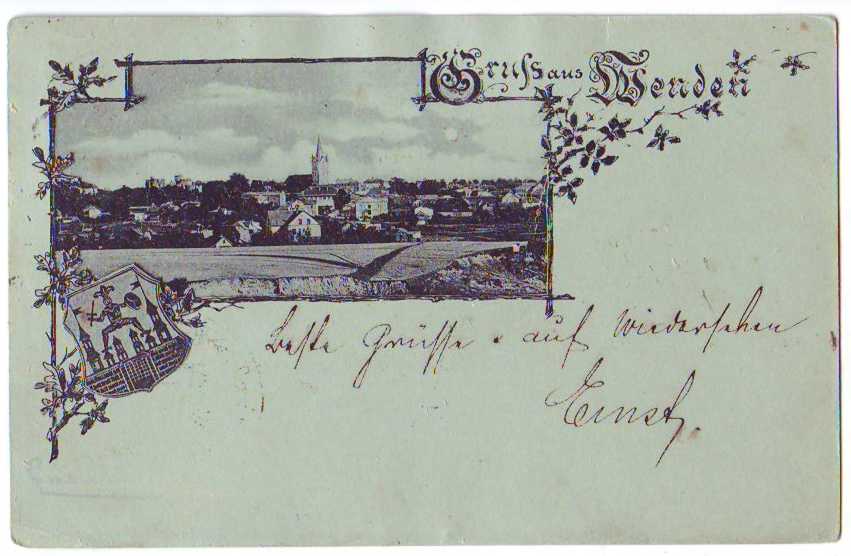 Gruss aus Wenden
Beste Grüsse. auf wiedersehen
Ernst.